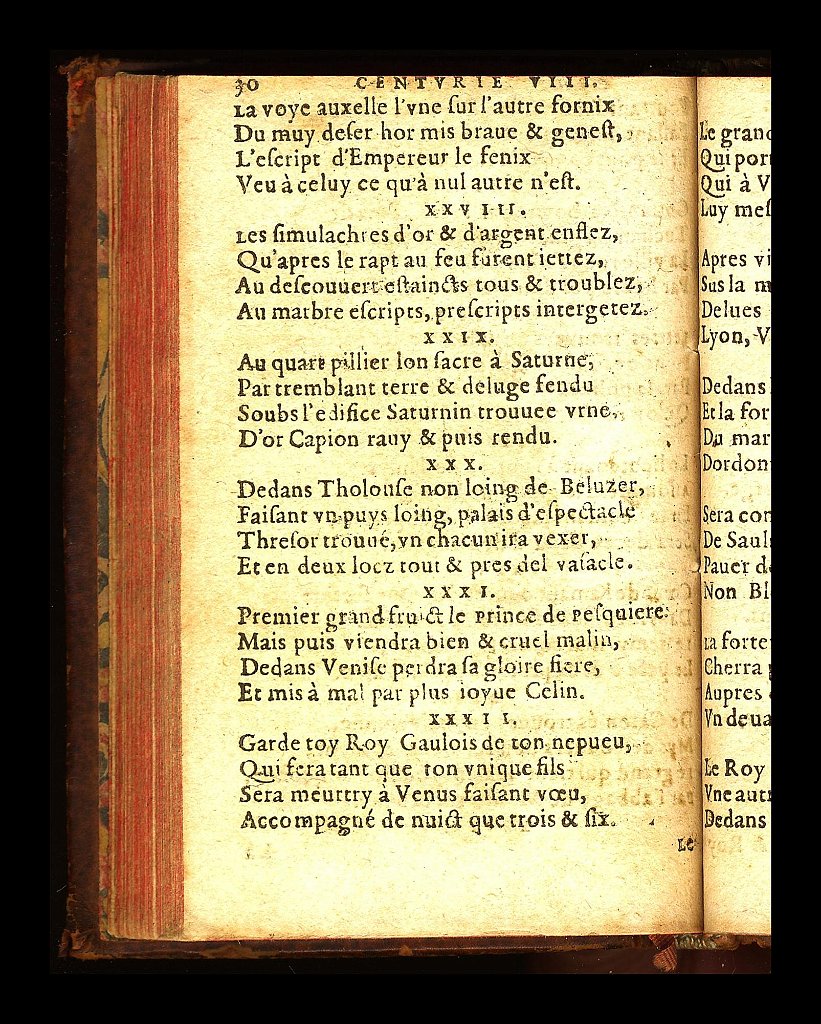 30 CENTVRIE VIII.
La voye auxelle l'vne ſur l'autre fornix
Du muy deſer hor mis braue & geneſt,
L'eſcript d'Empereur le fenix
Veu à celuy ce qu'à nul autre n'eſt.
XXVIII.
Les ſimulachres d'or & d'argent enflez,
Qu'apres le rapt au feu furent iettez,
Au deſcouuert eſtaincts tous & troublez,
Au marbre eſcripts, preſcripts intergetez.
XXIX.
Au quart pillier lon ſacre à Saturne,
Par tremblant terre & deluge fendu
Soubs l'edifice Saturnin trouuee vrne,
D'or Capion rauy & puis rendu.
XXX.
Dedans Tholouſe non loing de Beluzer,
Faiſant vn puys loing, palais d'eſpectacle
Threſor trouué, vn chacun ira vexer,
Et en deux locz tout & pres del vaſacle.
XXXI.
Premier grand fruict le Prince de Peſquiere:
Mais puis viendra bien & cruel malin,
Dedans Veniſe perdra ſa gloire fiere,
Et mis à mal par plus ioyue Celin.
XXXII.
Garde toy Roy Gaulois de ton nepueu,
Qui fera tant que ton vnique fils
Sera meurtry à Venus faiſant vœu,
Accompagné de nuict que trois & ſix.
Le
Le grand
Qui
Qui à V
Luy meſ
Apres vi
Sus la m
Delues
Lyon, V
Dedans
Et la for
Du mar
Dordon
Sera con
De Saul
Pauer d
Non Bl
La forte
Cherra
Aupres
Vn de ua
Le Roy
Vne autr
Dedans